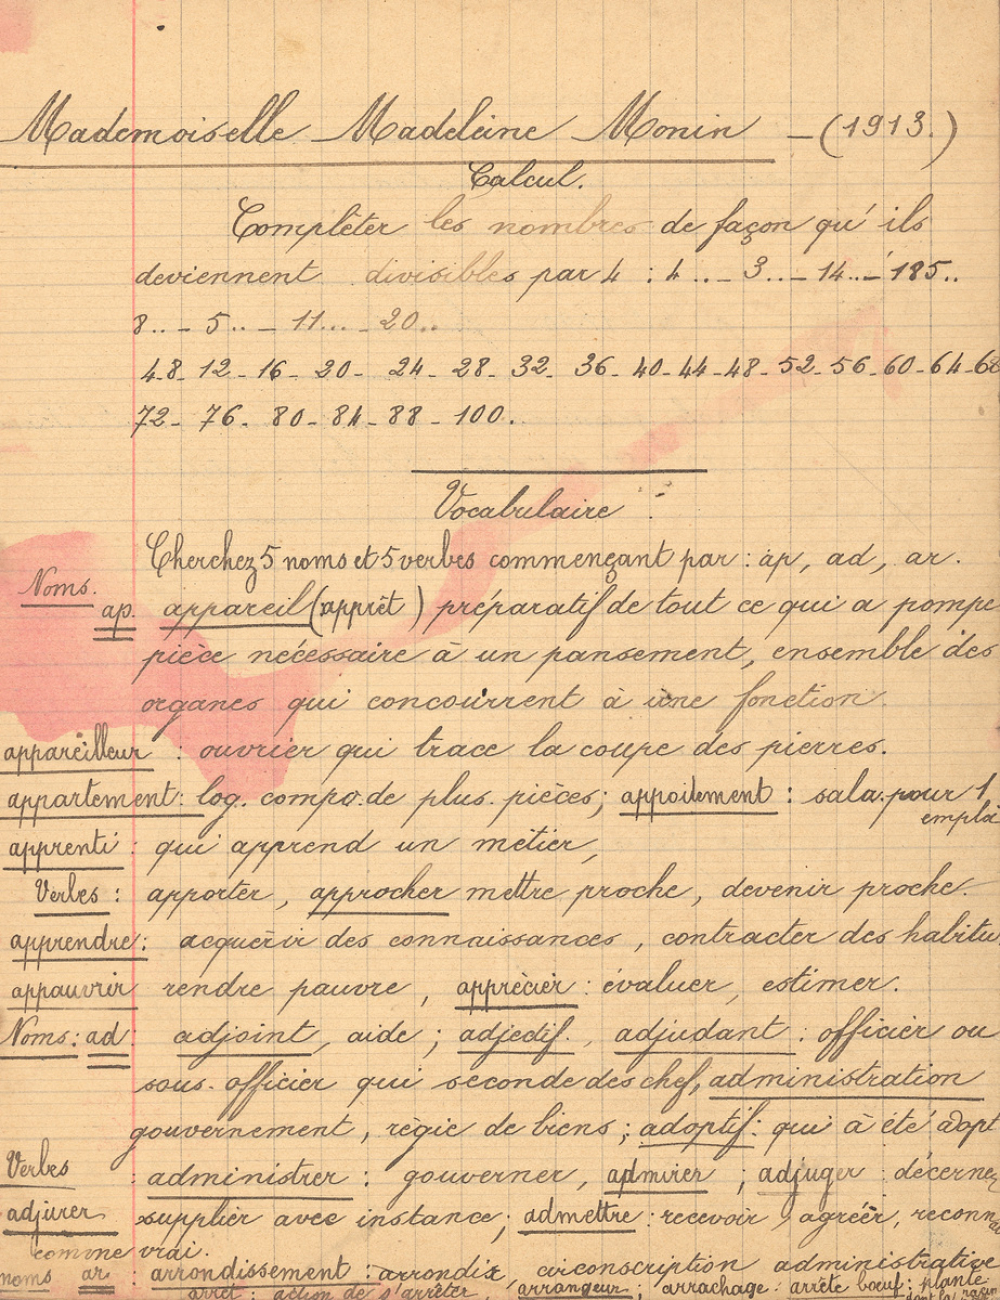 Mademoiselle Madeleine Monin – (1913.)
Calcul.
Complêter les nombres de façon qu' ils
deviennent divisibles par 4 : 4 .. – 3 .. – 14 .. – 185 ..
8 .. – 5 .. – 11 ... – 20 ..
48 – 12 – 16 – 20 – 24 – 28 – 32 – 36 – 40 – 44 – 48 – 52 – 56 – 60 – 64 – 68
72 – 76 – 80 – 84 – 88 – 100.
Vocabulaire
Cherchez 5 noms et 5 verbes commençant par : ap, ad, ar.
Noms.
ap. appareil (apprêt) préparatif de tout ce qui a pompe
pièce nécessaire à un pansement, ensemble des
organes qui concourrent à une fonction.
appareilleur : ouvrier qui trace la coupe des pierres.
appartement : log. compo. de plus. pièces ; appoitement : sala. pour 1
emploi
apprenti : qui apprend un métier,
Verbes : apporter, approcher mettre proche, devenir proche.
apprendre : acquèrir des connaissances, contracter des habitu
appauvrir rendre pauvre, apprècier : évaluer, estimer.
Noms : ad : adjoint, aide ; adjedif., adjudant : officier ou
sous-officier qui seconde des chef, administration
gouvernement, règie de biens ; adoptif : qui à été adopt
Verbes : administrer : gouverner, admirer ; adjuger décerner
adjurer supplier avec instance ; admettre : recevoir, agréer, reconn
comme vrai.
noms ar : arrondissement : arrondix, circonscription administrative
arrêt : action de s'arrêter, arrangeur ; arrachage : arrête bœuf : plante
dont la racin